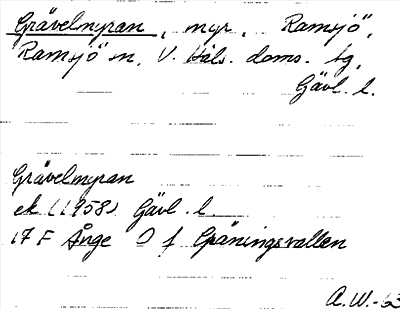 Grävelmyran, myr, Ramsjö,
Ramsjö sn, V. Häls. doms. tg,
Gävl. l.
Grävelmyran
ek (1958) Gävl. l.
17 F Ånge O f Gräningsvallen
A.W.-63